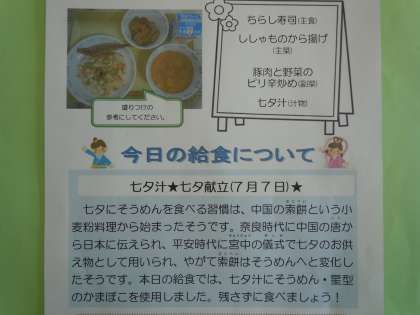 ちらし寿司(主食)
ししゃものから揚げ
(主菜)
豚肉と野菜の
ピリ辛炒め(副菜)
七夕汁(汁物)
盛りつけの
参考にしてください。
今日の給食について
七夕汁★七夕献立(7月7日)★
七夕にそうめんを食べる習慣は、中国の索餅という小
麦粉料理から始まったそうです。奈良時代に中国の唐か
ら日本に伝えられ、平安時代に宮中の儀式で七夕のお供
え物として用いられ、やがて索餅はそうめんへと変化し
たそうです。本日の給食では、七夕汁にそうめん・星型
のかまぼこを使用しました。残さずに食べましょう!